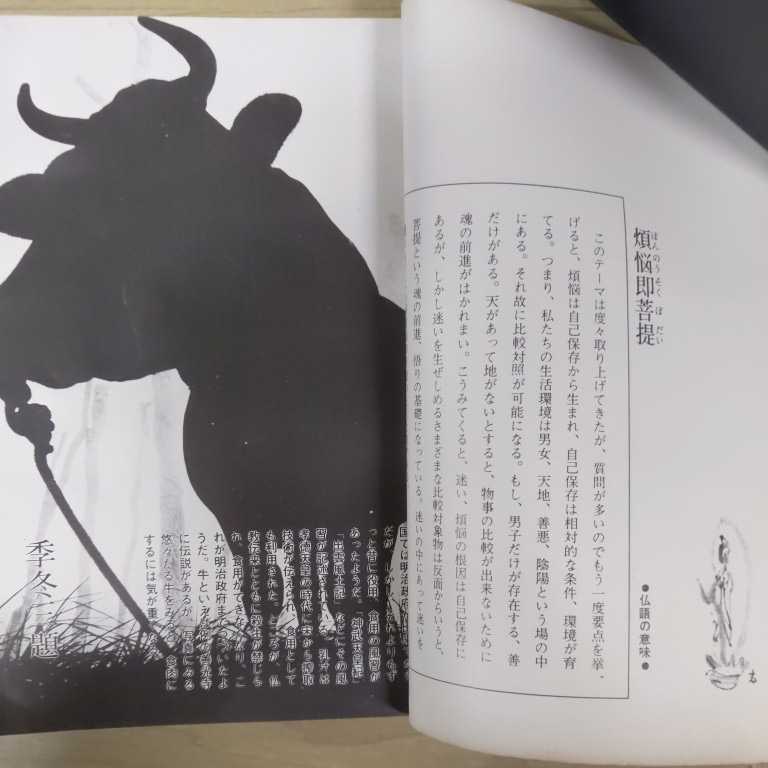 ●仏語の意味●
煩悩即菩提
ぼんのうそくぼだい
このテーマは度々取り上げてきたが、質問が多いのでもう一度要点を挙
げると、煩悩は自己保存から生まれ、自己保存は相対的な条件、環境が育
てる。つまり、私たちの生活環境は男女、天地、善悪、陰陽という場の中
にある。それ故に比較対照が可能になる。もし、男子だけが存在する、善
だけがある。天があって地がないとすると、物事の比較が出来ないために
魂の前進がはかれまい。こうみてくると、迷い、煩悩の根因は自己保存に
あるが、しかし迷いを生ぜしめるさまざまな比較対象物は反面からいうと、
菩提という魂の前進、悟りの基礎になっている。迷いの中にあって迷いを
国では明治政府
だが、しかし
っと昔に役用、食用の風習が
あったようだ。「神武天皇紀」
「出雲風土記」などにその風
習が記述されている。乳牛は
孝徳天皇の時代に宋から搾取
技術が伝えられ、食用として
も利用された。ところが、仏
教伝来とともに殺生が禁じら
れ、食用ができなくなり、こ
れが明治政府までつづいたよ
うだ。牛といえば
善光寺
に伝説があるが、写真にみる
悠々たる牛をみると、食肉に
するには気が重
季冬三題